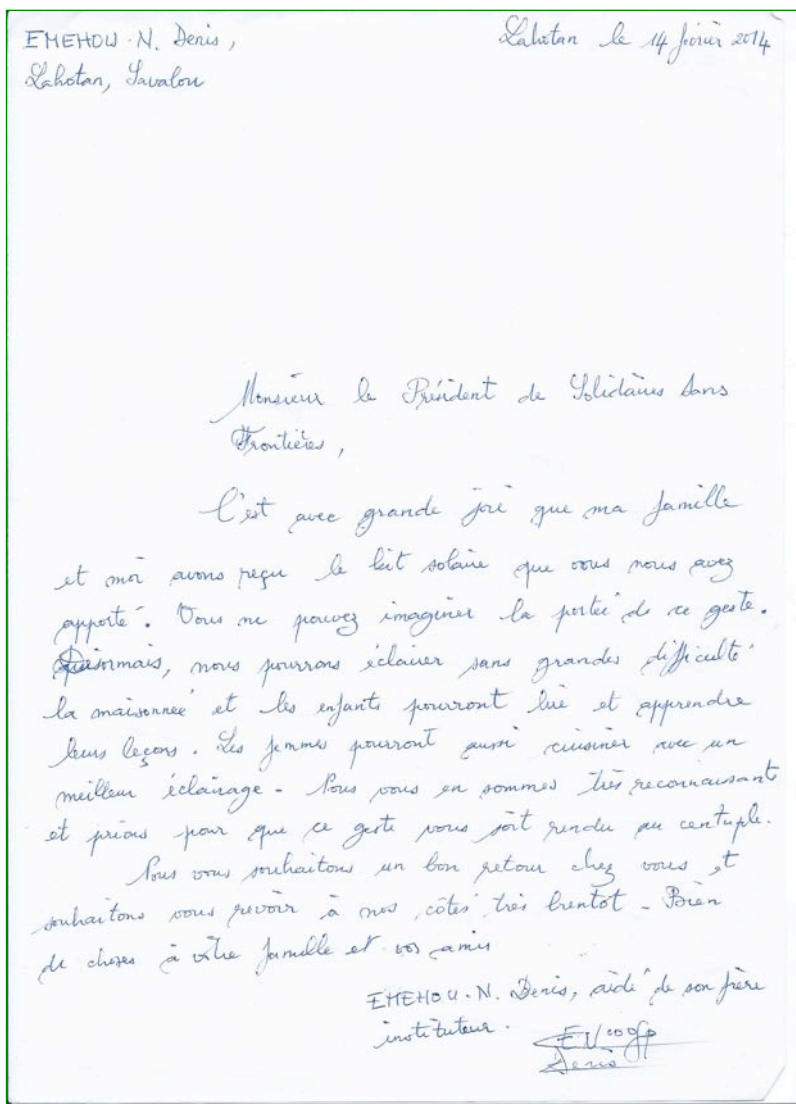 EMEHOU. N. Denis,
Lahotan le 14 février 2014
Lahotan, Savalou
Monsieur le Président de Solidaires Sans
Frontières,
C'est avec grande joie que ma famille
et moi avons reçu le kit solaire que vous nous avez
apporté. Vous ne pouvez imaginer la portée de ce geste.
Désormais, nous pourrons éclairer sans grandes difficulté
la maisonnée et les enfants pourront lire et apprendre
leurs leçons. Les femmes pourront aussi cuisiner avec un
meilleur éclairage - Nous vous en sommes très reconnaissant
et prions pour que ce geste vous soit rendu au centuple.
Nous vous souhaitons un bon retour chez vous et
souhaitons vous revoir à nos côtés très bientot - Bien
de choses à votre famille et vos amis
EMEHOU. N. Denis, aidé de son frère
instituteur.
Denis